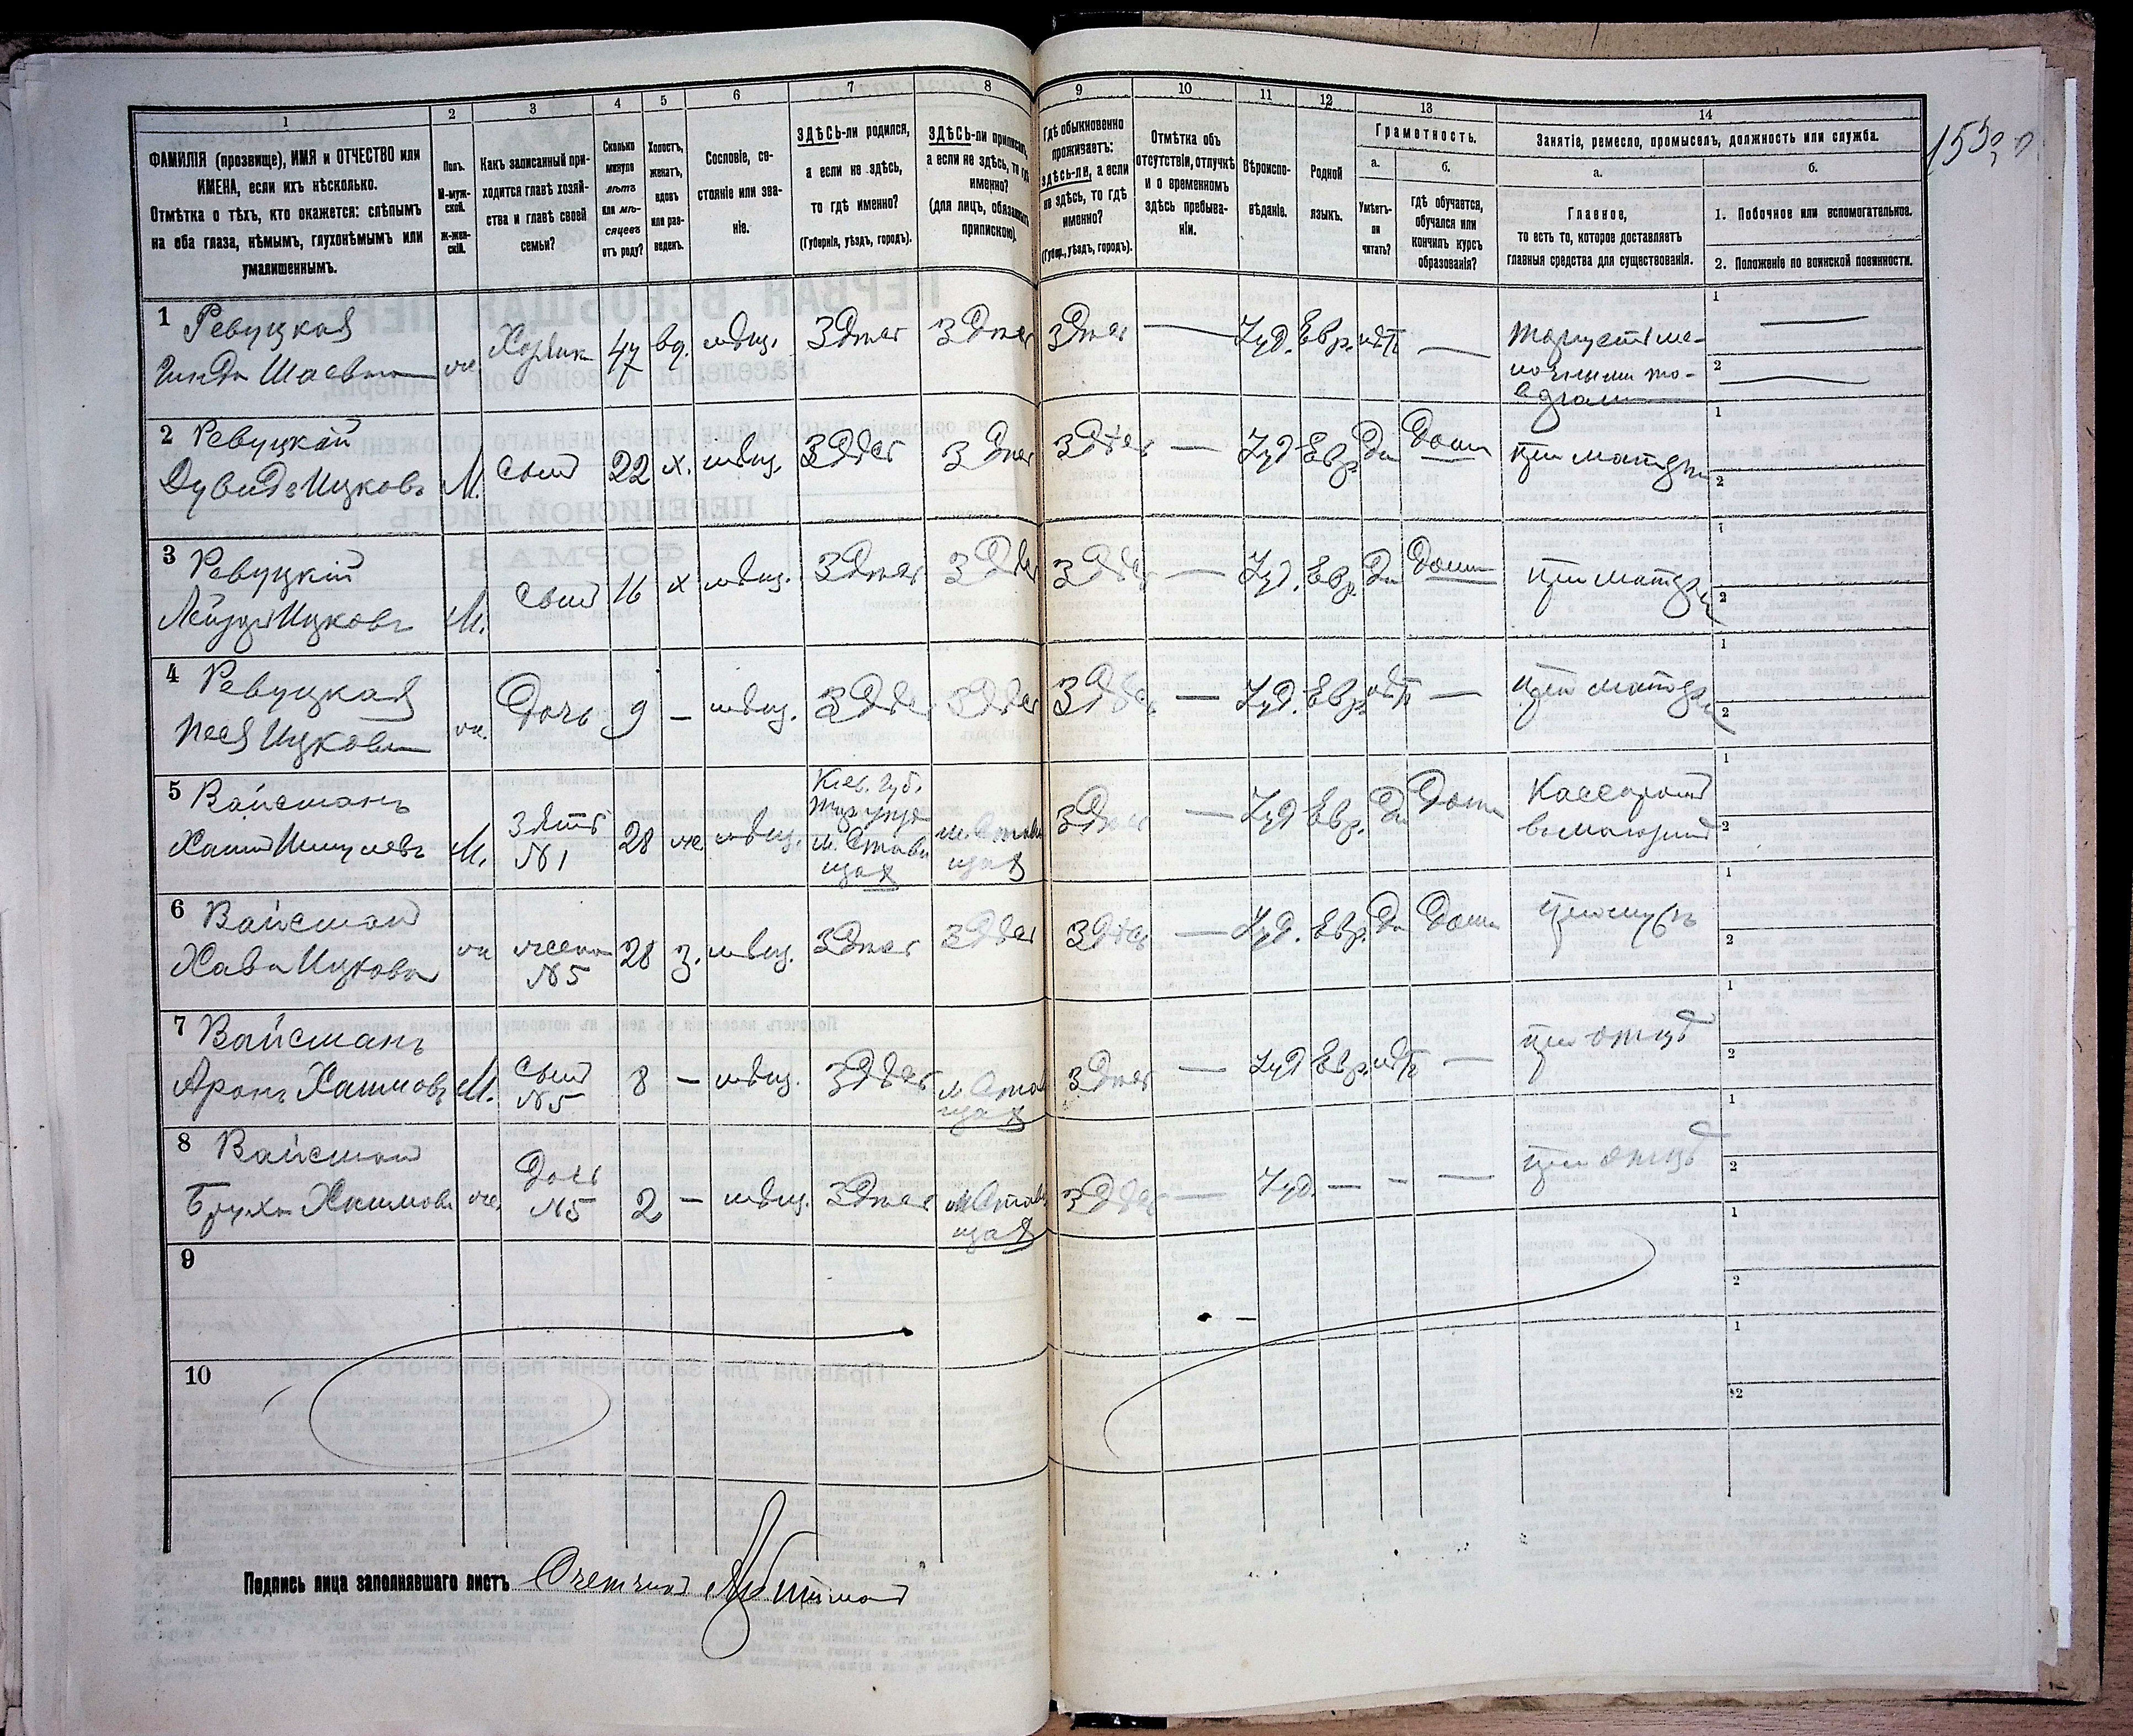 1 2 3 4 5 6 7 8 9 10 11 12 13 14
ФАМИЛІЯ (прозвище), ИМЯ и ОТЧЕСТВО или
ИМЕНА, если ихъ нѣсколько.
Отмѣтка о тѣхъ, кто окажется: слѣпымъ
на оба глаза, нѣмымъ, глухонѣмымъ или
умалишеннымъ.
Полъ.
М-муж-
ской.
Ж-жен-
скій.
Какъ записанный при-
ходится главѣ хозяй-
ства и главѣ своей
семьи?
Сколько
минуло
лѣтъ
или мѣ-
сяцевъ
отъ роду?
Холостъ,
женатъ,
вдовъ
или раз-
веденъ.
Сословіе, со-
стояніе или зва-
ніе.
ЗДѢСЬ-ли родился,
а если не здѣсь,
то гдѣ именно?
(Губернія, уѣздъ, городъ).
ЗДѢСЬ-ли приписанъ,
а если не здѣсь, то гдѣ
именно?
(для лицъ, обязанныхъ
припискою).
Гдѣ обыкновенно
проживаетъ:
здѣсь-ли, а если
не здѣсь, то гдѣ
именно?
(Губер., уѣздъ, городъ).
Отмѣтка объ
отсутствіи, отлучкѣ
и о временномъ
здѣсь пребыва-
ніи.
Вѣроиспо-
вѣданіе.
Родной
языкъ.
Грамотность.
а.
Умѣетъ-
ли
читать?
б.
гдѣ обучается,
обучался или
кончилъ курсъ
образованія?
Занятіе, ремесло, промыселъ, должность или служба.
а.
Главное,
то есть то, которое доставляетъ
главныя средства для существованія.
б.
1. Побочное или вспомогательное.
2. Положеніе по воинской повинности.
1 Ревуцкая
Шаевна
47 вд. мѣщ. Здѣсь Здѣсь Здѣсь — Іуд. Евр. нѣтъ —
1 —
2 —
2 Ревуцкій
Дувидъ Ицковъ
М. сынъ 22 х. мѣщ. Здѣсь Здѣсь Здѣсь — Іуд. Евр. Да Дома при матери
1
2
3 Ревуцкій
Лейзеръ Ицковъ
М. сынъ 16 х мѣщ. Здѣсь Здѣсь Здѣсь — Іуд. Евр. Да Дома при матери
1
2
4 Ревуцкая
Песя Ицкова
ж. Дочь 9 — мѣщ. Здѣсь Здѣсь Здѣсь — Іуд. Евр. нѣтъ — при матери
1
2
5 Вайсманъ
Хаимъ Шмулевъ
М. Зять
№1
28 же. мѣщ.
Кіев. губ.
м. Стави
щах
м. Стави
щах
Здѣсь — Іуд Евр. Да Дома
1
2
6 Вайсман
Хава Ицкова
ж жена
№5
28 з. мѣщ. Здѣсь Здѣсь Здѣсь — Іуд. Евр. Да Дома при мужѣ
1
2
7 Вайсманъ
Аронъ Хаимовъ
М. сынъ
№5
8 — мѣщ. Здѣсь
м. Стави
щах
Здѣсь — Іуд Евр. нѣтъ — при отцѣ
1
2
8 Вайсман
Бруха Хаимова
же. Дочь
№5
2 — мѣщ. Здѣсь
м. Стави
щах
Здѣсь — Іуд. — - — при отцѣ
1
2
9
1
2
10
1
2
Подпись лица заполнявшаго листъ Счетчикъ